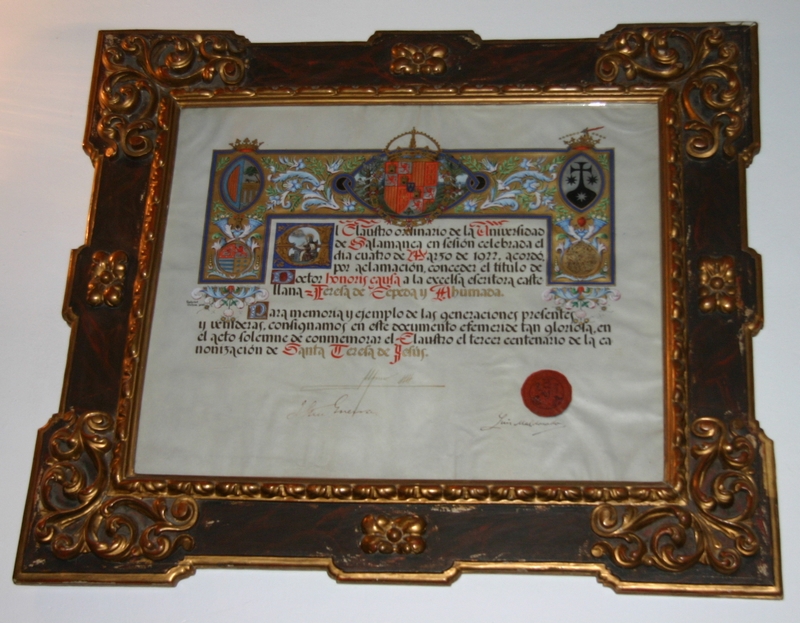 El Claustro ordinario de la Universidad
de Salamanca en sesión celebrada el
dia cuatro de Marzo de 1922, acordó,
por aclamación, conceder el titulo de
Doctor honoris causa a la excelsa escritora caste
llana Teresa de Cepeda y Ahumada.
Para memoria y ejemplo de las generaciones presentes
y venideras, consignamos en este documento efemeride tan gloriosa, en
el acto solemne de conmemorar el Claustro el tercer centenario de la ca
nonización de Santa Teresa de Jesús.